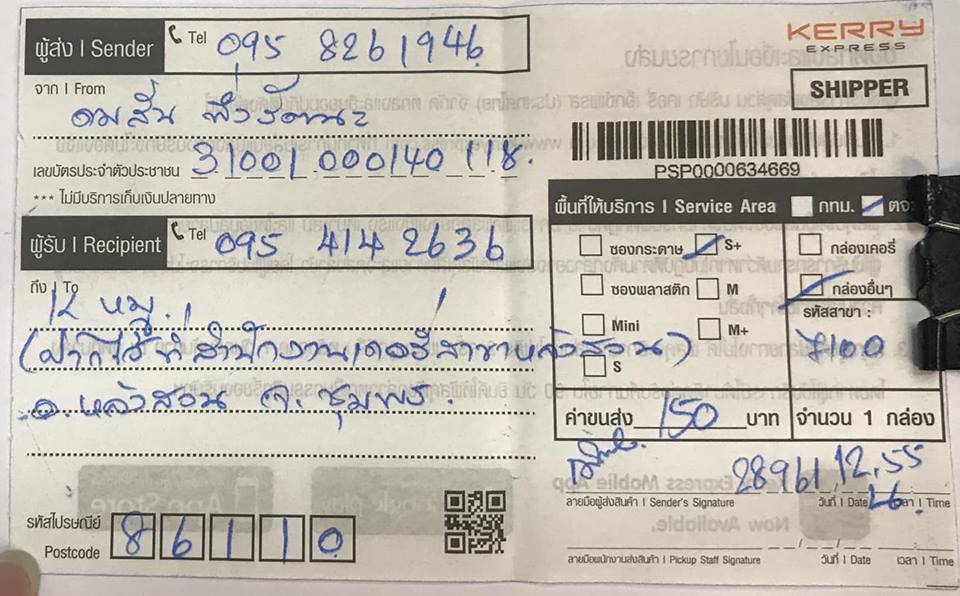 ผู้ส่ง | Sender Tel 095 8261946
KERRY
EXPRESS
จาก | From
SHIPPER
เลขบัตรประจำตัวประชาชน 31001 000140 118
*** ไม่มีบริการเก็บเงินปลายทาง
PSP0000634669
พื้นที่ให้บริการ | Service Area กทม. ตจ
ผู้รับ | Recipient Tel 095 414 2636
ถึง | To
ซองกระดาษ S+ กล่องเคอรี่
ซองพลาสติก M กล่องอื่นๆ
Mini M+ รหัสสาขา :
S
(ฝากไว้ที่สำนักงานเคอรี่สาขาหลังสวน)
อ. หลังสวน จ. ชุมพร.
ค่าขนส่ง 150 บาท จำนวน 1 กล่อง
12.55
ลายมือผู้ส่งสินค้า | Sender's Signature วันที่ | Date เวลา | Time
รหัสไปรษณีย์
Postcode 86110
ลายมือพนักงานส่งสินค้า | Pickup Staff Signature วันที่ | Date เวลา | Time